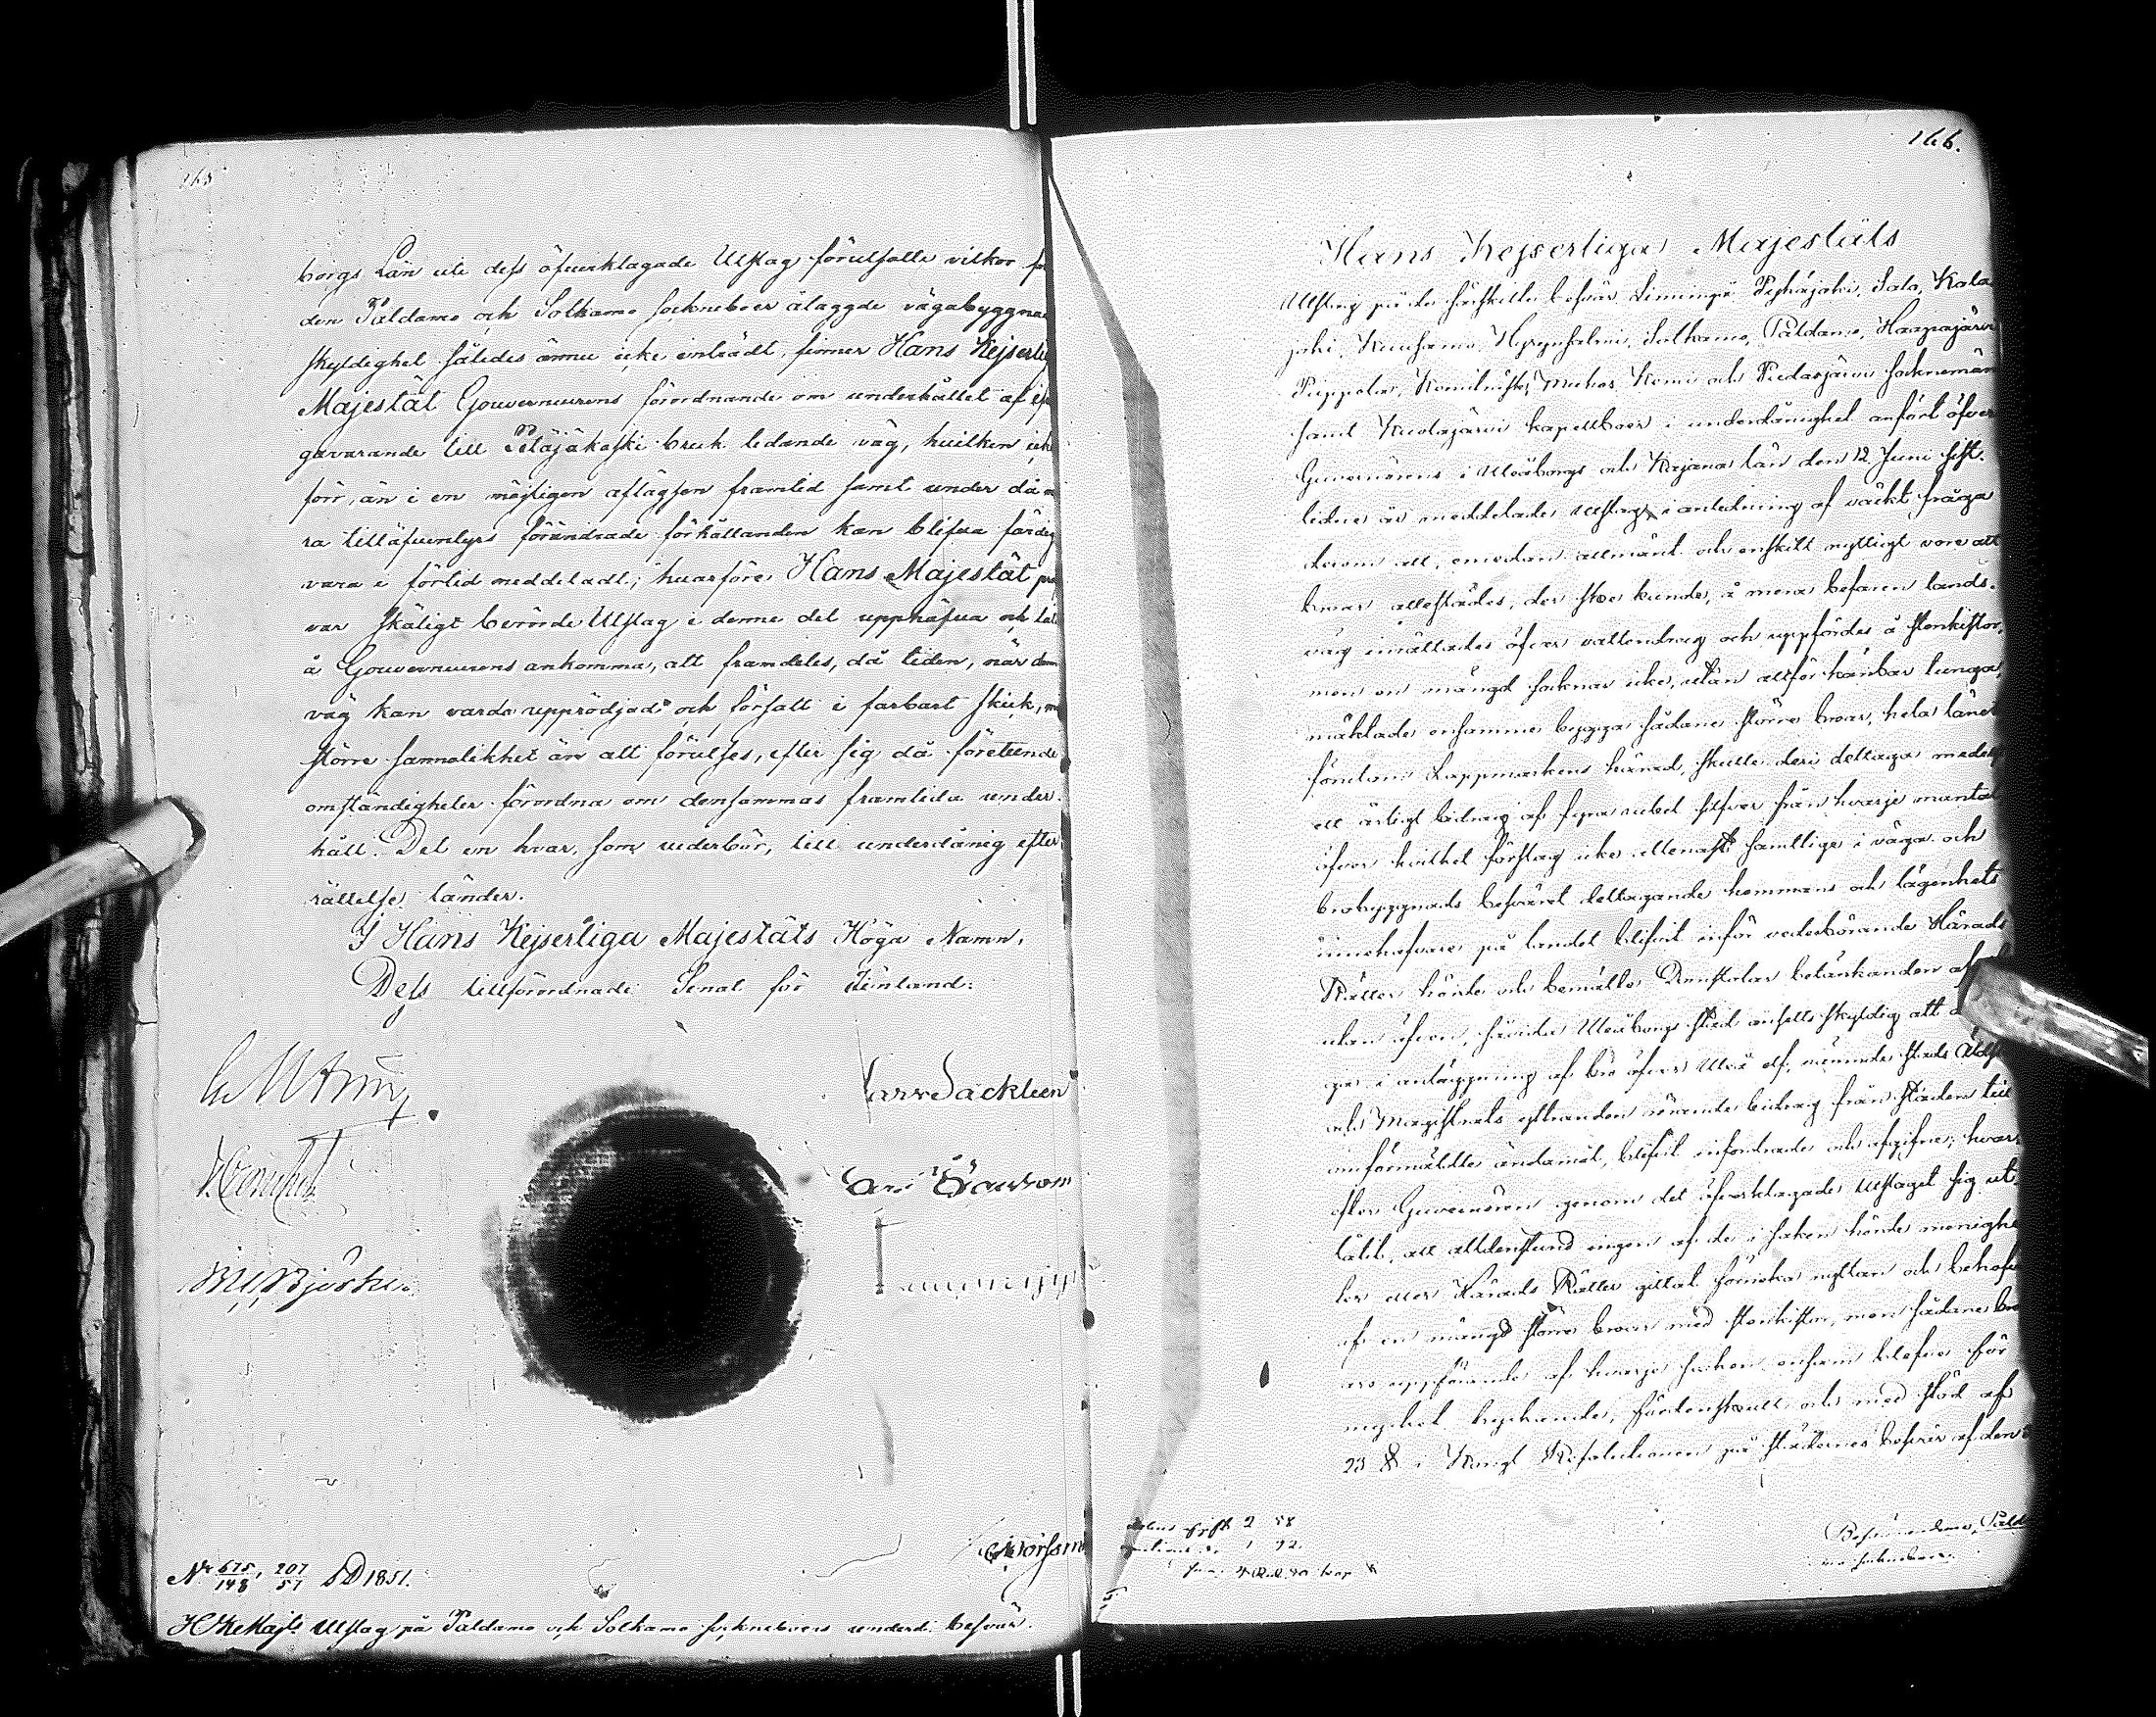 265
borgs Län uti dess öfverklagade Utslag förutsatte vilkor för
den Paldamo och Sotkamo sockneboer ålaggde vägabyggnad
skyldighet således ännu icke inträdt, finner Hans Kejserlig
Majestät Gouverneurens förordnande om underhållet af
gavarande till Petäjäkoski bruk ledande väg, hvilken icke
förr, än i en möjligen aflägsen framtid samt under då
ra tilläfventyrs förändrade förhållanden kan blifva färdig
vara i förtid meddeladt; hvarföre Hans Majestät
var skäligt berörde Utslag i denna del upphäfva och
å Gouverneurens ankomma, att framdeles, då tiden, när den
väg kan varda upprödjad och försatt i farbart skick, 
större sannolikhet än att förutses, efter sig då företeende
omständigheter förordna om densammas framtida under-
håll. Det en hvar, som vederbör, till underdånig efter
rättelse länder.
I Hans Kejserliga Majestäts Höga Namn,
Dess tillförordnade Senat för Finland:
Lars Sackleen
No 675/148, 207/57 SD 1851.
H K Majts Utslag på Paldamo och Sotkamo sockneboers underd. besvär.
266.
Hans Kejserliga Majestäts
Utslag på de särskilda besvär, Limingo, Pyhäjoki, Salo, Kala
joki, Kuusamo, Hyrynsalmi, Sotkamo, Paldamo, Haapajärvi
Pippola, Muhos, Kemi och Pudasjärvi socknemän
samt Kuolajärvi kapellboer i underdånighet anfört öfver
Guvernörens i Uleåborgs och Kajana län den 12 Juni sist-
lidne år meddelade Utslag, i anledning af väckt fråga
derom att, emedan allmänt och enskilt nyttigt vore att
broar allestädes, der ske kunde, å mera befaren lands-
väg inrättades öfver vattendrag och uppfördes å stenkistor,
men en mängd socknar icke, utan allför kännbar tunga,
mäktade ensamme bygga sådane större broar, hela länet
förutom Lappmarkens härad, skulle deri deltaga medelst
ett årligt bidrag af fyra rubel silfver från hvarje mantal
öfver hvilket förslag icke allenast samtlige i väga- och
brobyggnads besväret deltagande hemmans och lägenhets
innehafvare på landet blifvit inför vederbörande Härads
Rätter hörde och bemälte Domstolars betänkanden
utan äfven, sävida Uleåborgs stad ansetts skyldig att
ga i anläggning af bro öfver Uleå elf, nämnde stads
och Magistrats utlåtanden rörande bidrag från staden till
omförmälte ändamål, blifvit infordrade och afgifne; hvar
efter Guvernören genom det öfverklagade Utslaget sig ut-
låtit, att alldenstund ingen af de i saken hörde menighe
ter eller Härads Rätter gittat förneka nyttan och behofvet
af en mängd större broar med stenkistor, men sådane bro
ars uppförande af hvarje socken ensam blefve för
mycket tryckande, fördenskull och med stöd af
23 § i Kongl. Resolutionen på städernes besvär af den